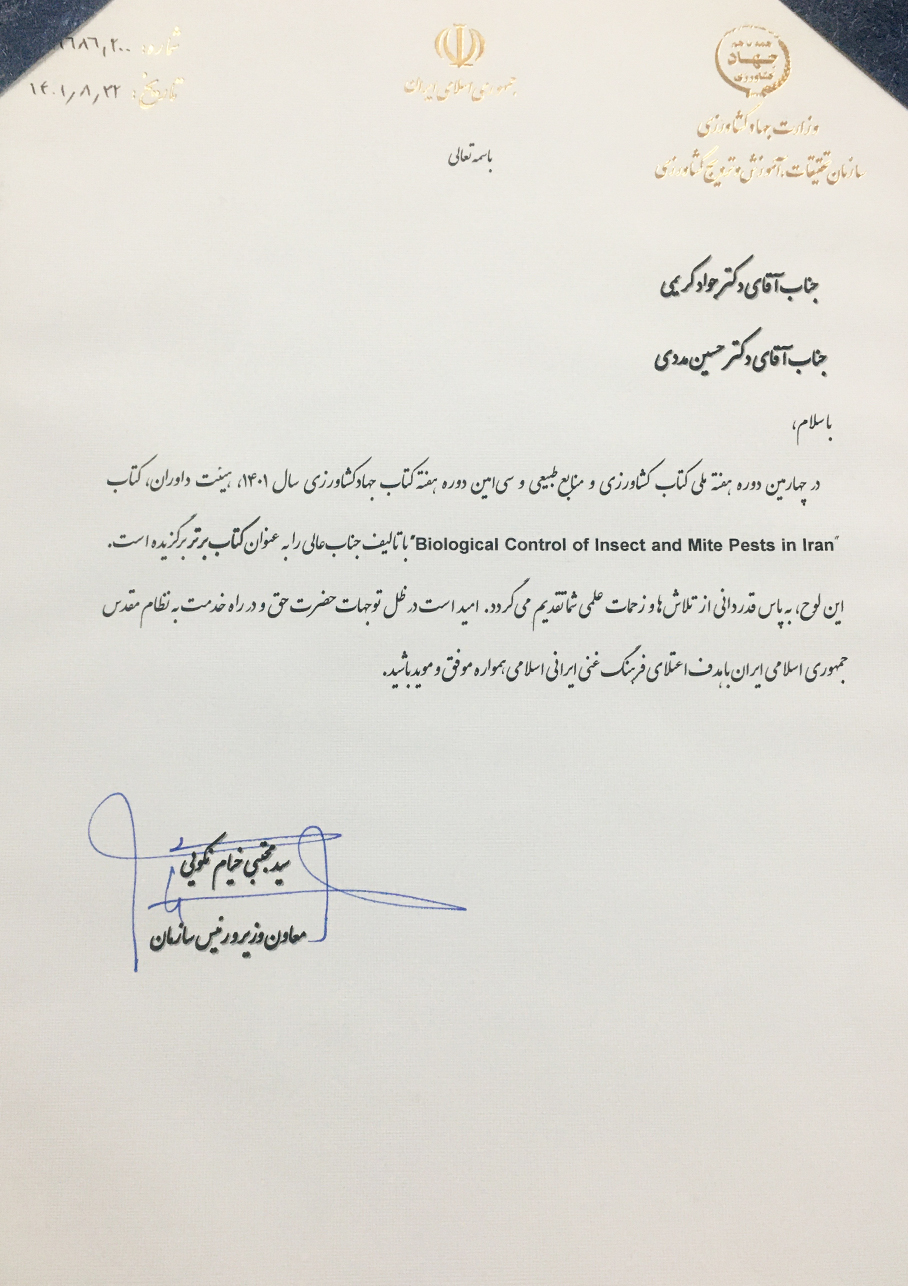 شماره: ۲۰۰/
تاریخ: ۱۴۰۱/۸/۲۲
جمهوری اسلامی ایران
جهاد
کشاورزی
وزارت جهاد کشاورزی
سازمان تحقیقات، آموزش و ترویج کشاورزی
باسمه تعالی
جناب آقای دکتر جواد کریمی
جناب آقای دکتر حسین مددی
با سلام،
در چهارمین دوره هفته ملی کتاب کشاورزی و منابع طبیعی و سی‌امین دوره هفته کتاب جهاد کشاورزی سال ۱۴۰۱، هیئت داوران، کتاب
"Biological Control of Insect and Mite Pests in Iran" با تالیف جناب‌عالی را به عنوان کتاب برتر برگزیده است.
این لوح، به پاس قدردانی از تلاش‌ها و زحمات علمی شما تقدیم می‌گردد. امید است در ظل توجهات حضرت حق و در راه خدمت به نظام مقدس
جمهوری اسلامی ایران با هدف اعتلای فرهنگ غنی ایرانی اسلامی همواره موفق و موید باشید.
سید مجتبی خیام نکویی
معاون وزیر و رئیس سازمان